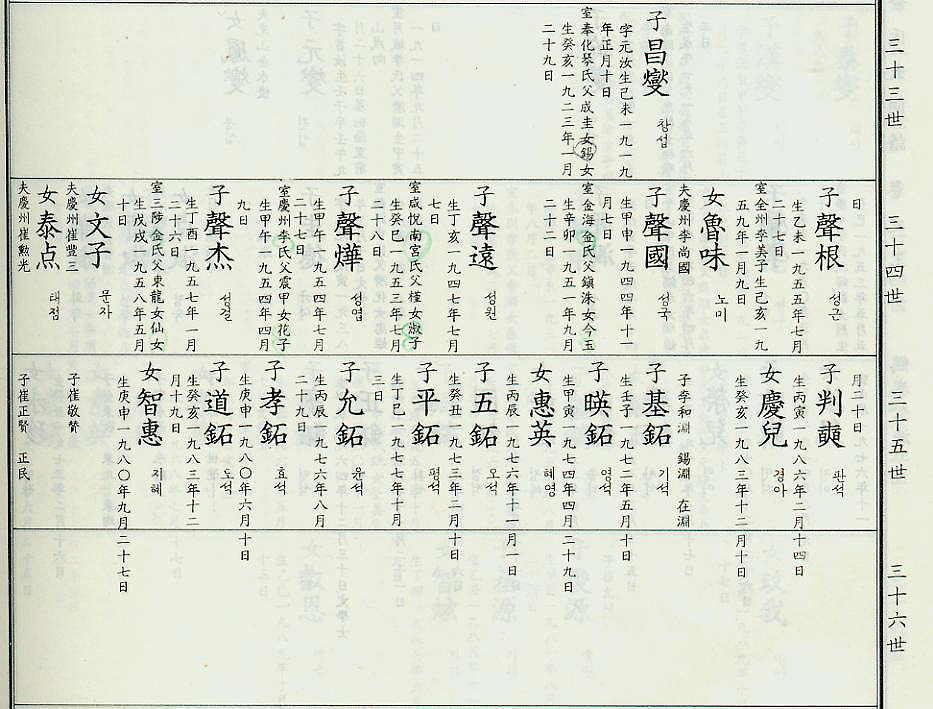 三十三世
子昌燮
창섭
字元汝生己未一九一九
年正月十日
室奉化琴氏父成圭女錫女
生癸亥一九二三年一月
二十九日
三十四世
日
子聲根
성근
生乙未一九五五年七月
二十七日
室全州李美子生己亥一九
五九年一月九日
女魯味
노미
夫慶州李尚國
子聲國
성국
生甲申一九四四年十一
月七日
室金海金氏父鎮洙女今玉
生辛卯一九五一年九月
二十二日
子聲遠
성원
生丁亥一九四七年七月
七日
室咸悅南宮氏父槿女淑子
生癸巳一九五三年七月
二十八日
子聲燁
성엽
生甲午一九五四年七月
二十七日
室慶州李氏父震甲女花子
生甲午一九五四年四月
九日
子聲杰
성걸
生丁酉一九五七年一月
二十六日
室三陟金氏父東龍女仙女
生戊戌一九五八年五月
十日
女文子
문자
夫慶州崔豐三
女泰点
태점
夫慶州崔勲光
三十五世
月二十日
子判奭
판석
生丙寅一九八六年二月十四日
女慶兒
경아
生癸亥一九八三年十二月十日
子李和淵 錫淵 在淵
子基鉐
기석
生壬子一九七二年五月十日
子暎鉐
영석
生甲寅一九七四年四月二十九日
女惠英
혜영
生丙辰一九七六年十一月一日
子五鉐
오석
生癸丑一九七三年二月十日
子平鉐
평석
生丁巳一九七七年十月
三日
子允鉐
윤석
生丙辰一九七六年八月
二十九日
子孝鉐
효석
生庚申一九八〇年六月十日
子道鉐
도석
生癸亥一九八三年十二
月十九日
女智惠
지혜
生庚申一九八〇年九月二十七日
子崔敬贊
子崔正賢 正民
三十六世